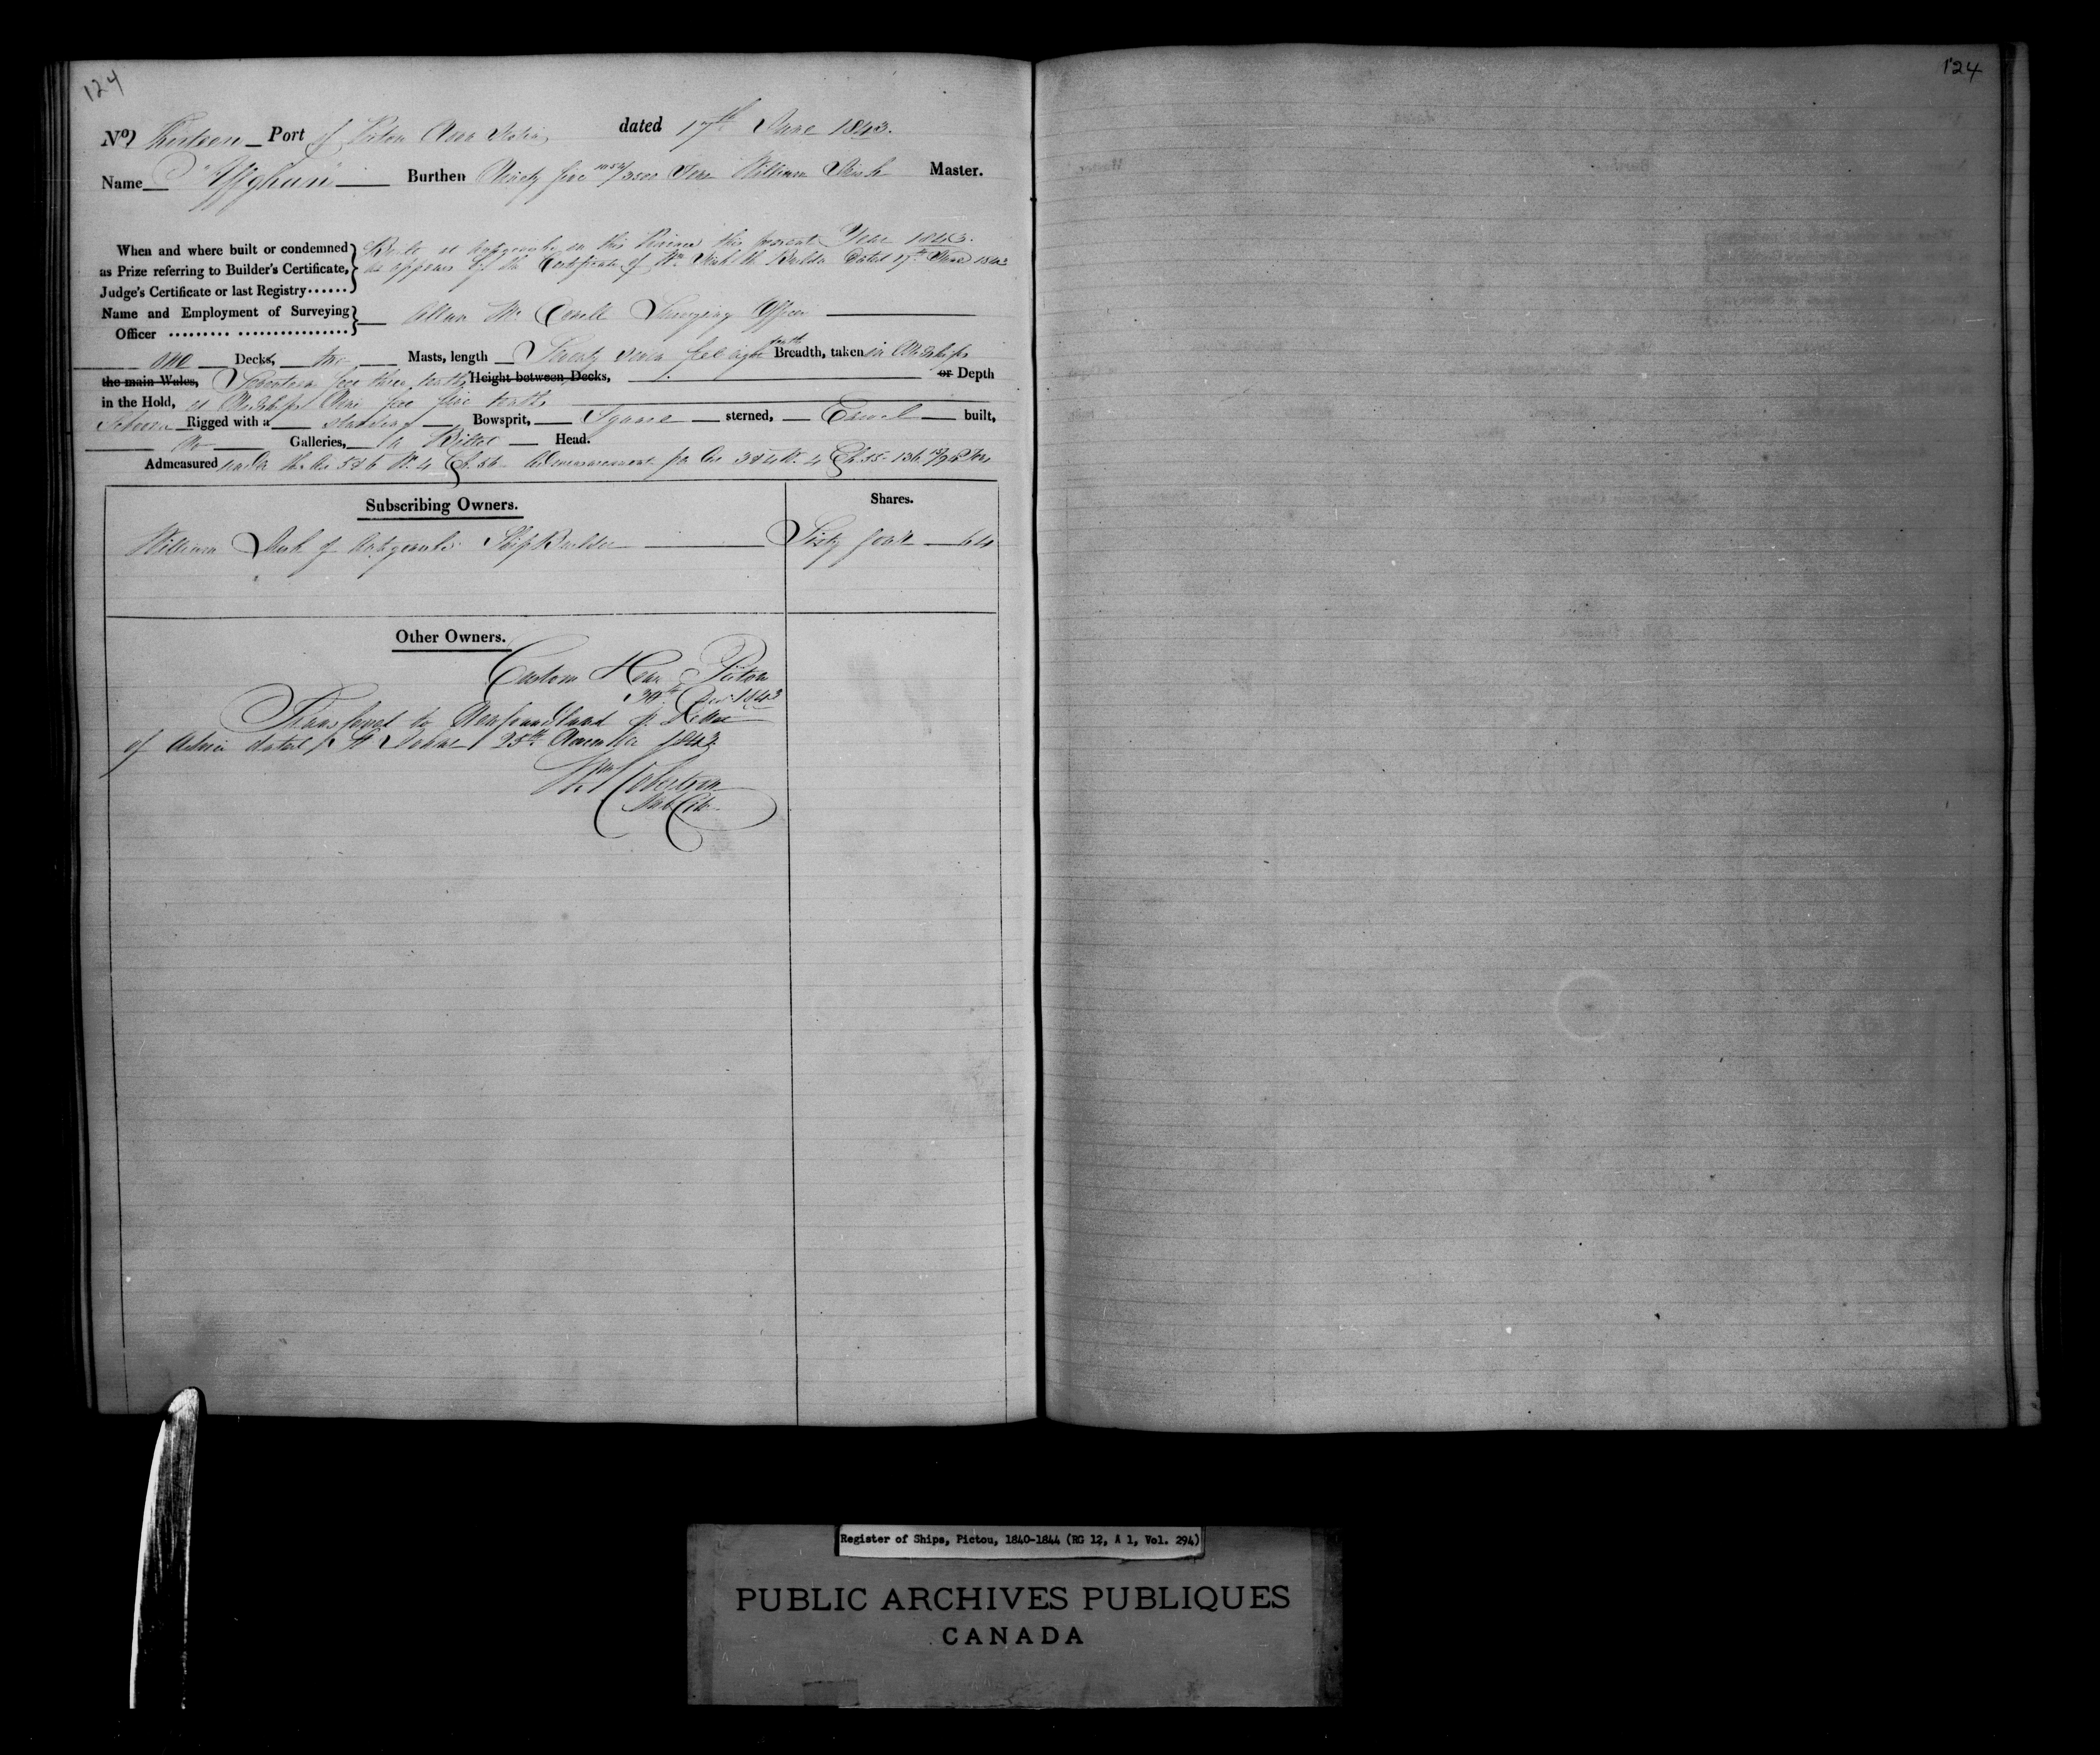 124
124
No Thirteen Port of Pictou Nova Scotia dated 17th June 1843.
Name "Affghan" Burthen Ninety five /3500 Tons William Master.
When and where built or condemned
as Prize referring to Builder's Certificate,
Judge's Certificate or last Registry......
Built at in this Province this present Year 1843.
as appears by the Certificate of Wm the Builder Dated 17th June 1843
Name and Employment of Surveying
Officer ......... ................
Allan Mc Surveying Officer
One Decks, two Masts, length Seventy seven feet eight tenths Breadth, taken in Midships
the main Wales, Seventeen feet three tenths Height between Decks, or Depth
in the Hold, at Midships Nine feet five tenths
Schooner Rigged with a standing Bowsprit, Square sterned, Carvel built,
No Galleries, a Billet Head.
Admeasured under the Act 5 & 6 W. 4 Ch. 56 Admeasurement p Act 3 & 4 W. 4 Ch. 55 - 136 Tons
Subscribing Owners. Shares.
William of Ship Builder Sixty four 64
Other Owners.
Custom House Pictou
30th Decr 1843
Transferred to Newfoundland p. Letter
of Advice dated p St Johns 25th November 1843
Wm Robertson
Sub Col
Register of Ships, Pictou, 1840-1844 (RG 12, A 1, Vol. 294)
PUBLIC ARCHIVES PUBLIQUES
CANADA